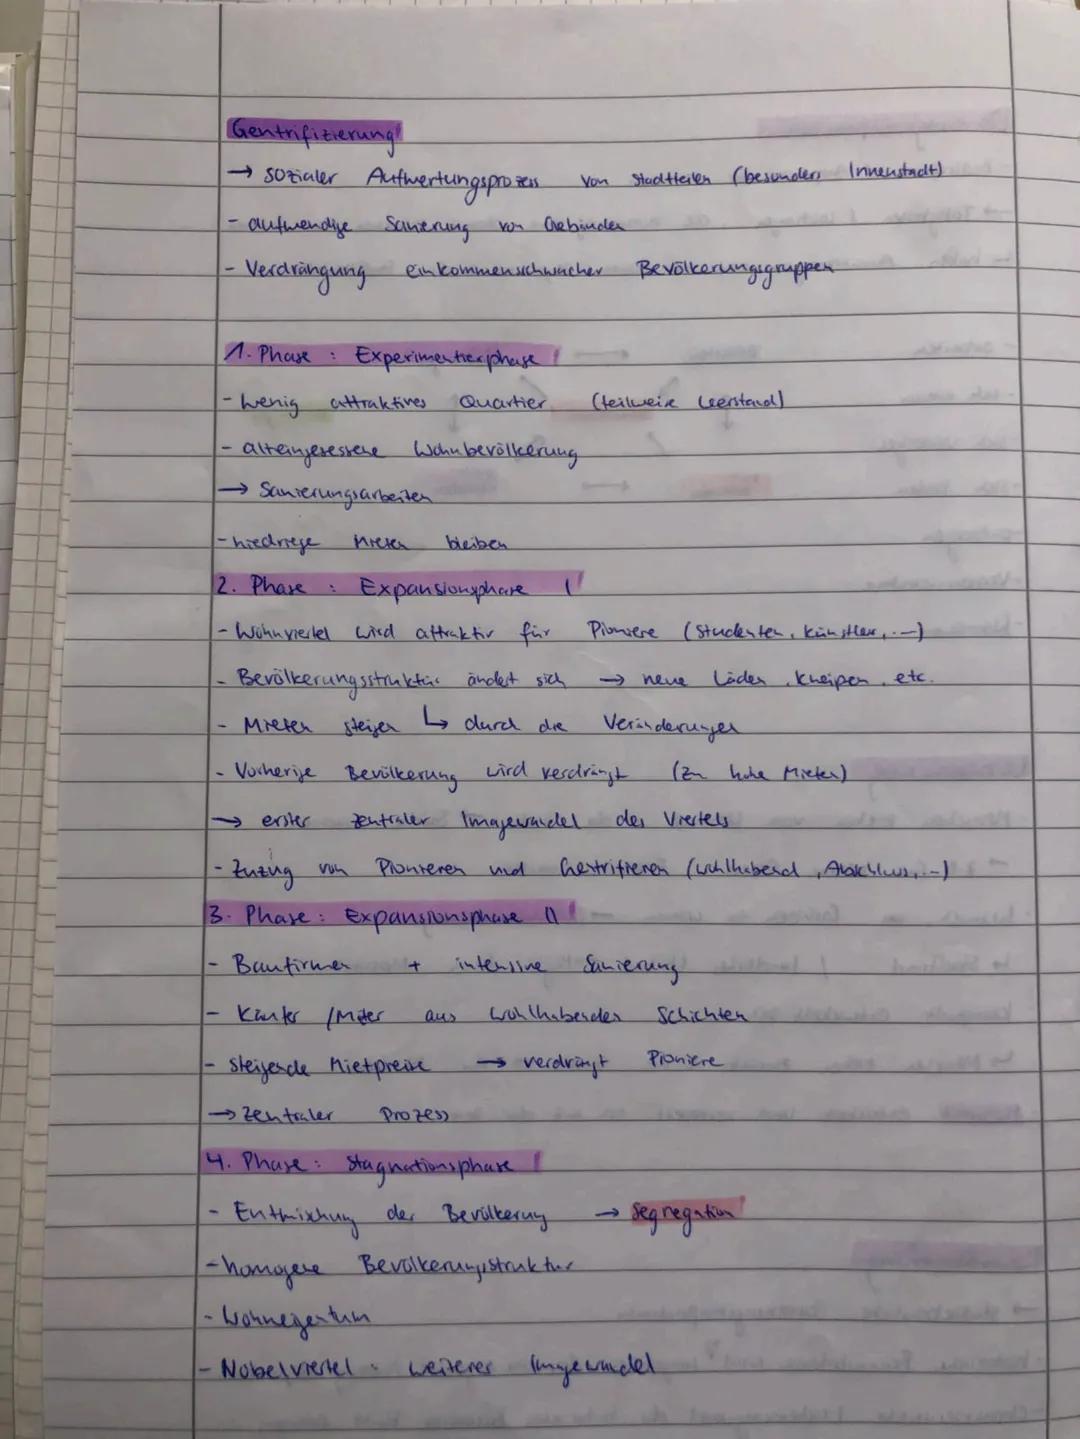 Gentrifizierung
→ sozialer Aufwertungsprozess von Stadtteilen (besonders Innenstadt)
- aufwendige Sanierung von Gebäuden
- Verdrängung einkommenschwacher Bevölkerungsgruppen
1. Phase : Experimentierphase
- wenig attraktives Quartier (teilweise Leerstand)
- alteingesessene Wohnbevölkerung
→ Sanierungsarbeiten
- niedriege Mieten bleiben
2. Phase : Expansionsphase I
- Wohnviertel wird attraktiv für Pioniere (Studenten, Künstler, ...)
- Bevölkerungsstruktur ändert sich → neue Läden, Kneipen, etc.
- Mieten steigen ↳ durch die Veränderungen
- Vorherige Bevölkerung wird verdrängt (zu hohe Mieten)
→ erster zentraler Imagewandel des Viertels
- Zuzug von Pionieren und Gentrifieren (wohlhabend, Abschluss, ...)
3. Phase : Expansionsphase II
- Baufirmen + intensive Sanierung
- Käufer / Mieter aus wohlhabenden Schichten
- Steigende Mietpreise → verdrängt Pioniere
→ Zentraler Prozess
4. Phase : Stagnationsphase
- Entmischung der Bevölkerung → Segregation
- homogene Bevölkerungsstruktur
- Wohneigentum
- Nobelviertel - weiterer Imagewandel